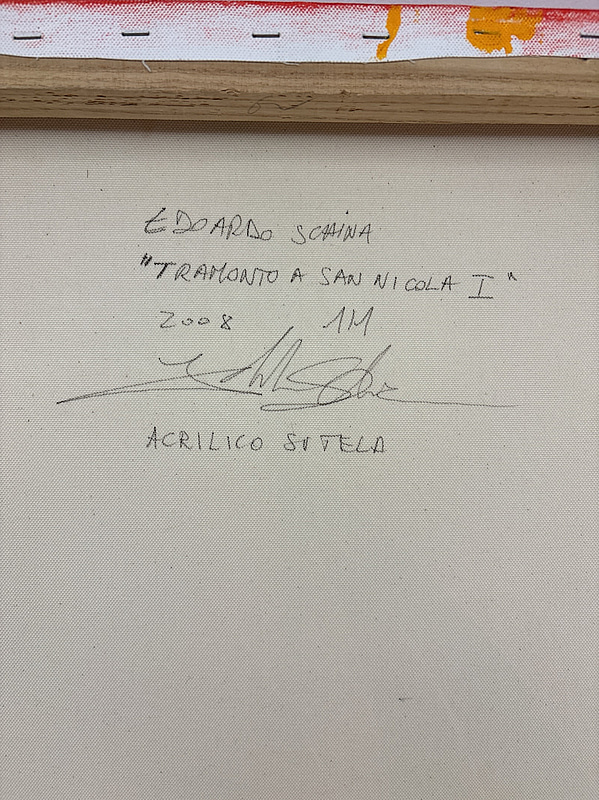 EDOARDO SCHINA
"TRAMONTO A SAN NICOLA I"
2008 1M
ACRILICO SU TELA